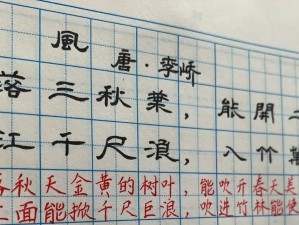 風
唐·李峤
落三秋葉，能開二
江千尺浪，入竹萬
秋天金黄的树叶，能吹开春天美
面能掀千尺巨浪，吹进竹林能使